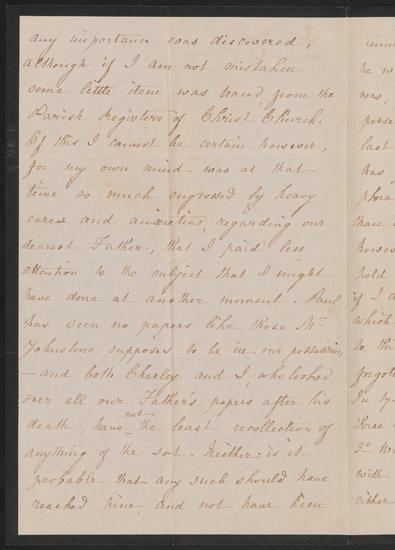 any importance was discovered,
although if I am not mistaken
some little item was traced, from the
Parish Registers of Christ Church.
Of this I cannot be certain however,
for my own mind was at that
time so much engrossed by heavy
cares and anxieties, regarding our
dearest Father, that I paid less
attention to the subject that I might
have done at another moment. Paul
has seen no papers like those Mr
Johnstone supposes to be in our possession,
- and both Charley and I, who looked
over all our Father's papers after his
death, have not the least recollection of
anything of the sort. Neither is it
probable that any such should have
reached him, and not have been
he w
was,
posse
last
has
phra
than
howev
held
if I d
which
to th
forgot
In 17
Three
with
either